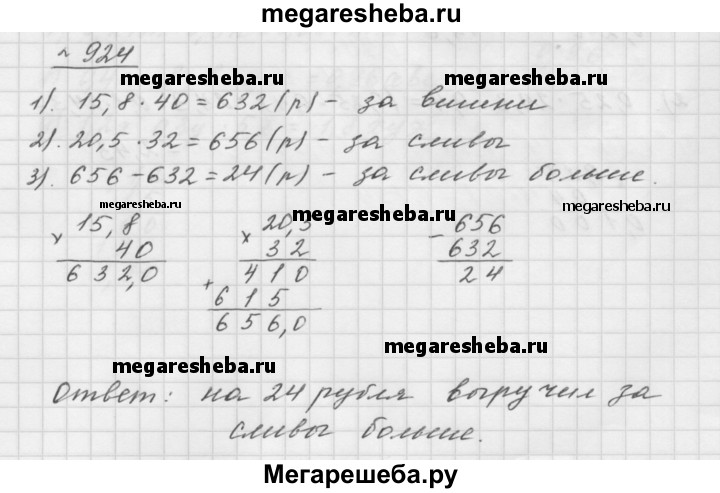 megaresheba.ru
№ 924
megaresheba.ru megaresheba.ru
1). 15,8 · 40 = 632 (р) – за вишни
2). 20,5 · 32 = 656 (р) – за сливы
3). 656 – 632 = 24 (р) – за сливы больше.
megaresheba.ru megaresheba.ru megaresheba.ru
× 15,8 × 20,5 – 656
40 32 632
632,0 410 24
+ 615
656,0
megaresheba.ru megaresheba.ru
Ответ: на 24 рубля выручил за
сливы больше.
Мегарешеба.ру